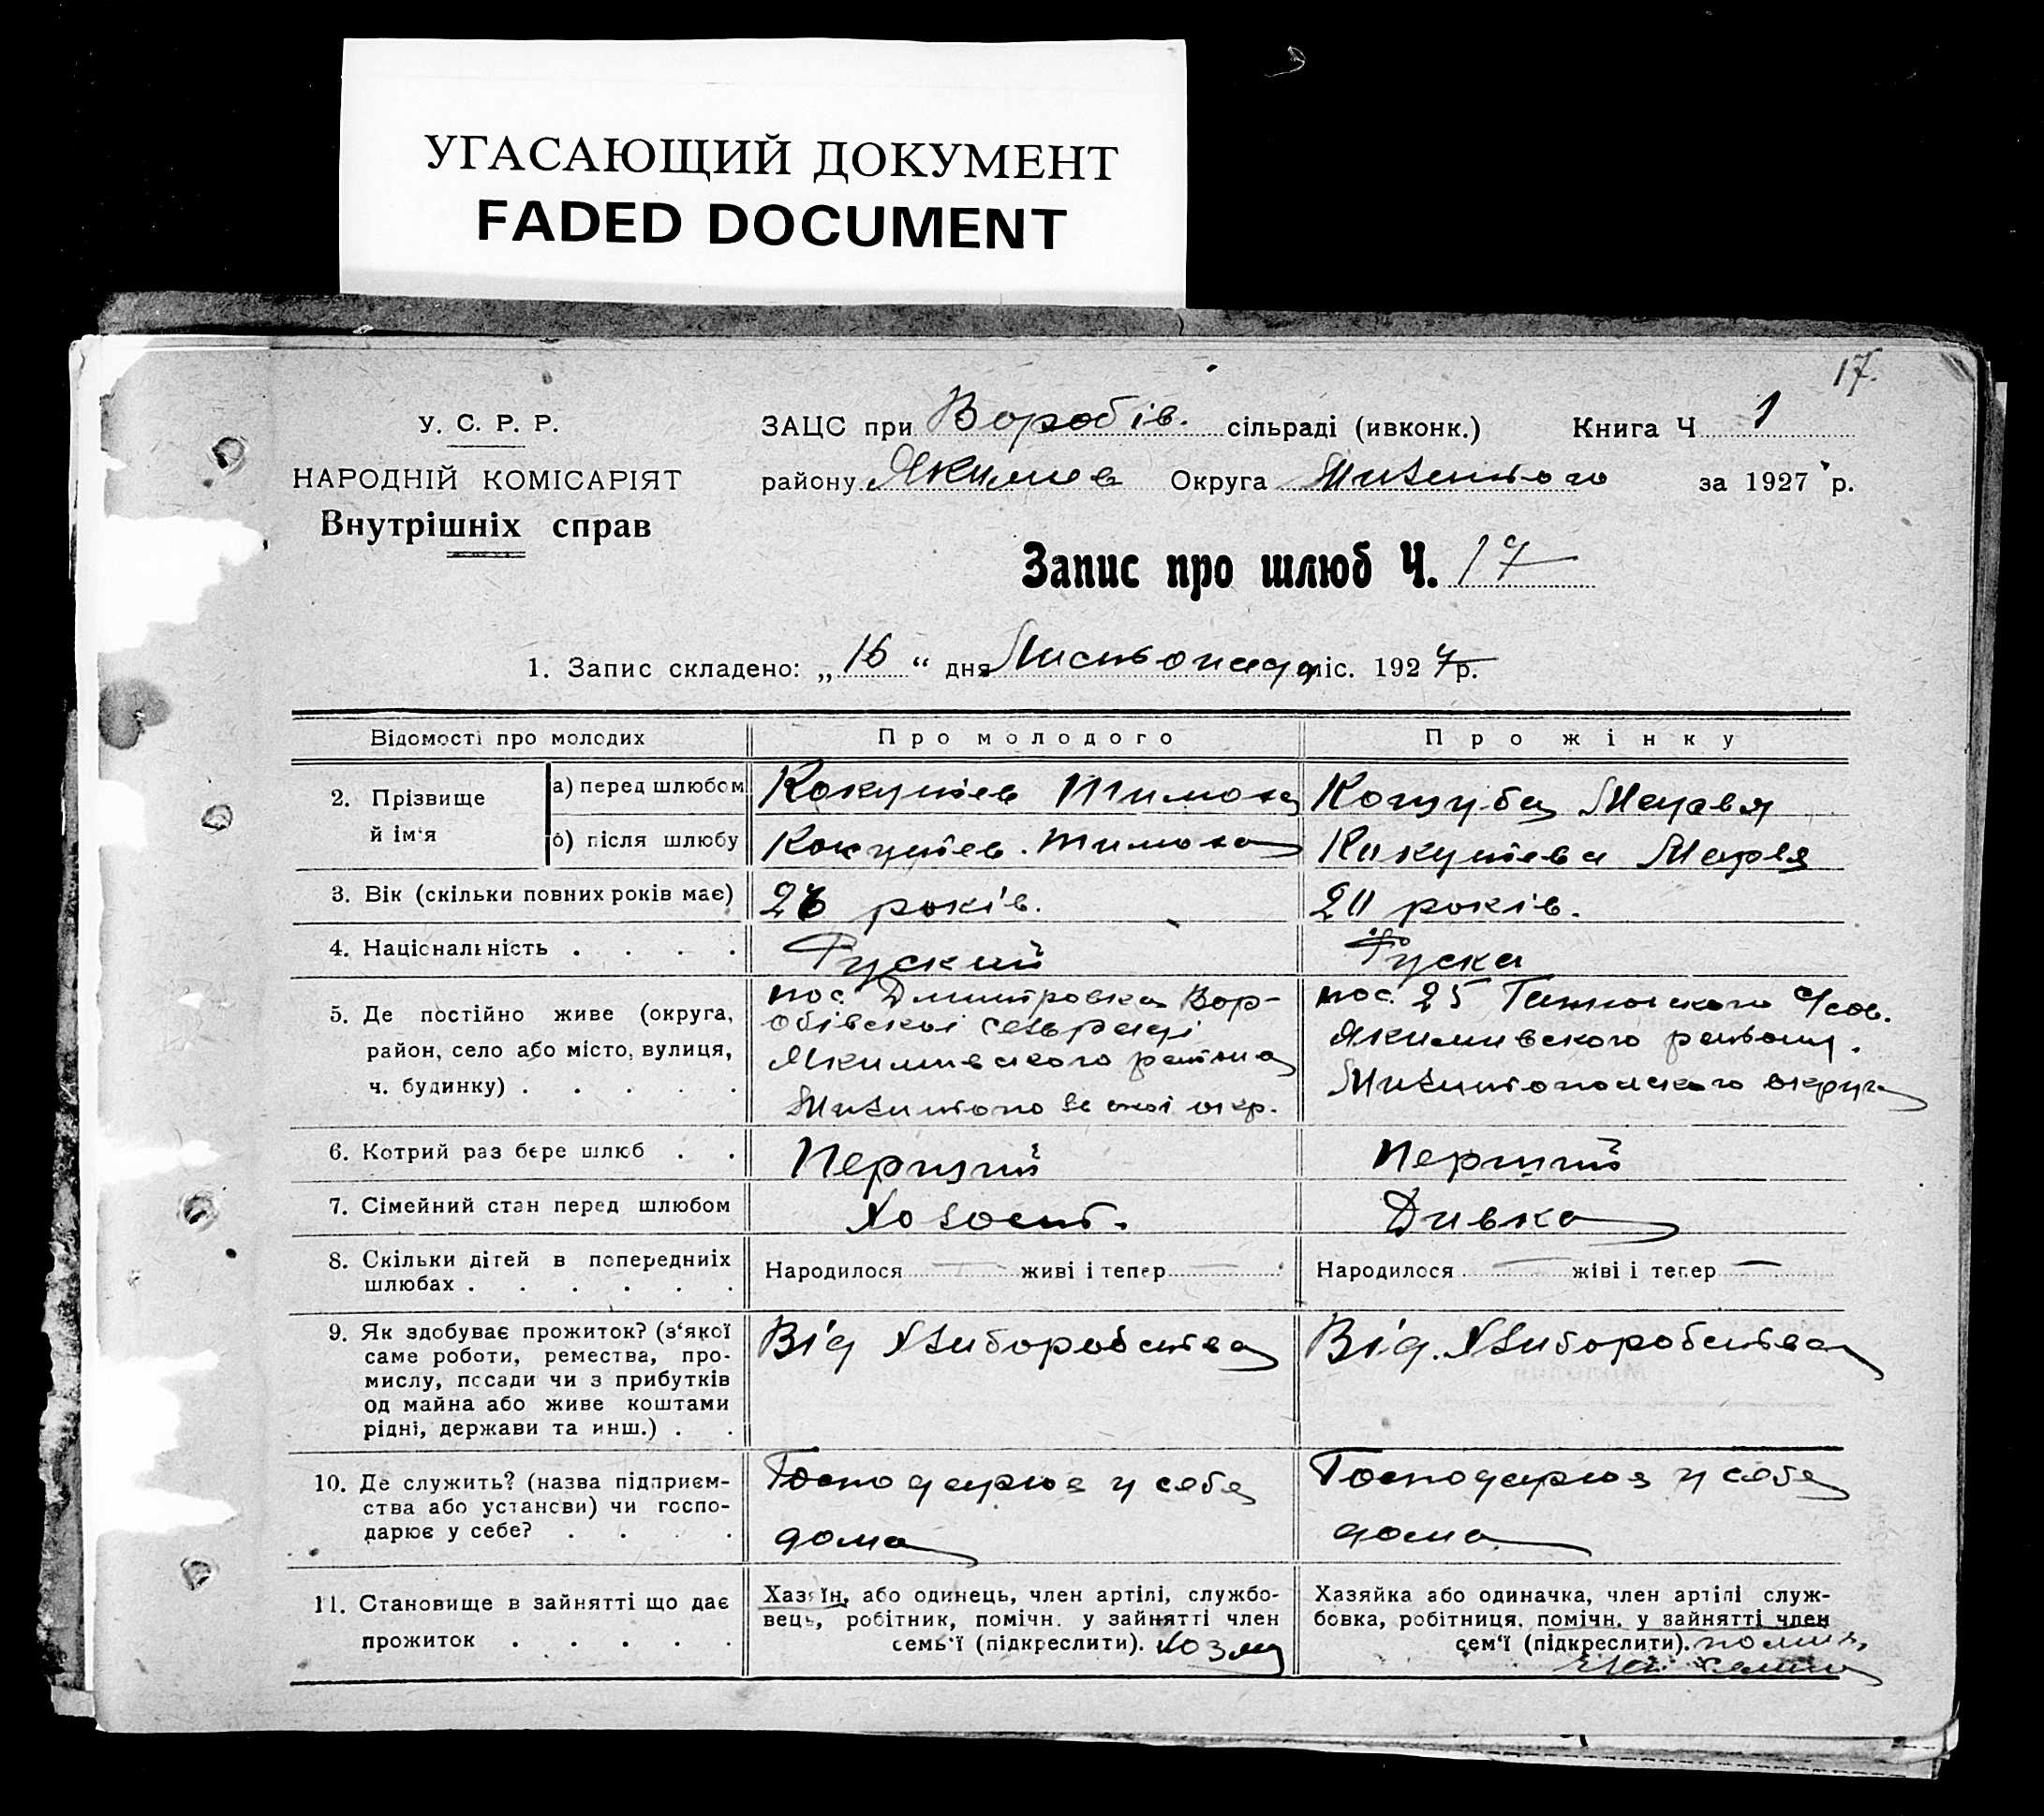 УГАСАЮЩИЙ ДОКУМЕНТ
FADED DOCUMENT
17.
У. С. Р. Р.
НАРОДНІЙ КОМІСАРІЯТ
Внутрішніх справ
ЗАЦС при Воробів. сільраді (ивконк.) Книга Ч 1
району Якимев Округа за 1927 р.
Запис про шлюб Ч. 17
1. Запис складено: „16“ дня Листопада міс. 1927 р.
Відомості про молодих
Про молодого
Про жінку
2. Прізвище й ім'я
а) перед шлюбом
Тимоха
Марія
б) після шлюбу
Тимоха
Марія
3. Вік (скільки повних років має)
26 років.
20 років.
4. Національність . . . .
Руский
Руска
5. Де постійно живе (округа,
район, село або місто, вулиця,
ч. будинку) . . . . .
пос. Дмитровка Вор-
обівскоі сельради
Якимивского района
окр.
пос. 25
Якимивского району.
округа
6. Котрий раз бере шлюб . .
Перший
Перший
7. Сімейний стан перед шлюбом
Холост.
Дивка
8. Скільки дітей в попередниіх
шлюбах . . . . . .
Народилося — живі і тепер —
Народилося — жіві і тепер —
9. Як здобуває прожиток? (з'якої
саме роботи, ремества, про-
мислу, посади чи з прибутків
од майна або живе коштами
рідні, держави та инш.) . .
Від Хлиборобства
Від. Хлиборобства
10. Де служить? (назва підприєм-
ства або установи) чи госпо-
дарює у себе? . . . .
Господарюя у себя
дома
Господарюя у себя
дома
11. Становище в зайнятті що дає
прожиток . . . . .
Хазяїн, або одинець, член артілі, службо-
вець, робітник, помічн. у зайнятті член
семь'ї (підкреслити).
Хазяйка або одиначка, член артілі служ-
бовка, робітниця, помічн. у зайнятті член
сем'ї (підкреслити).